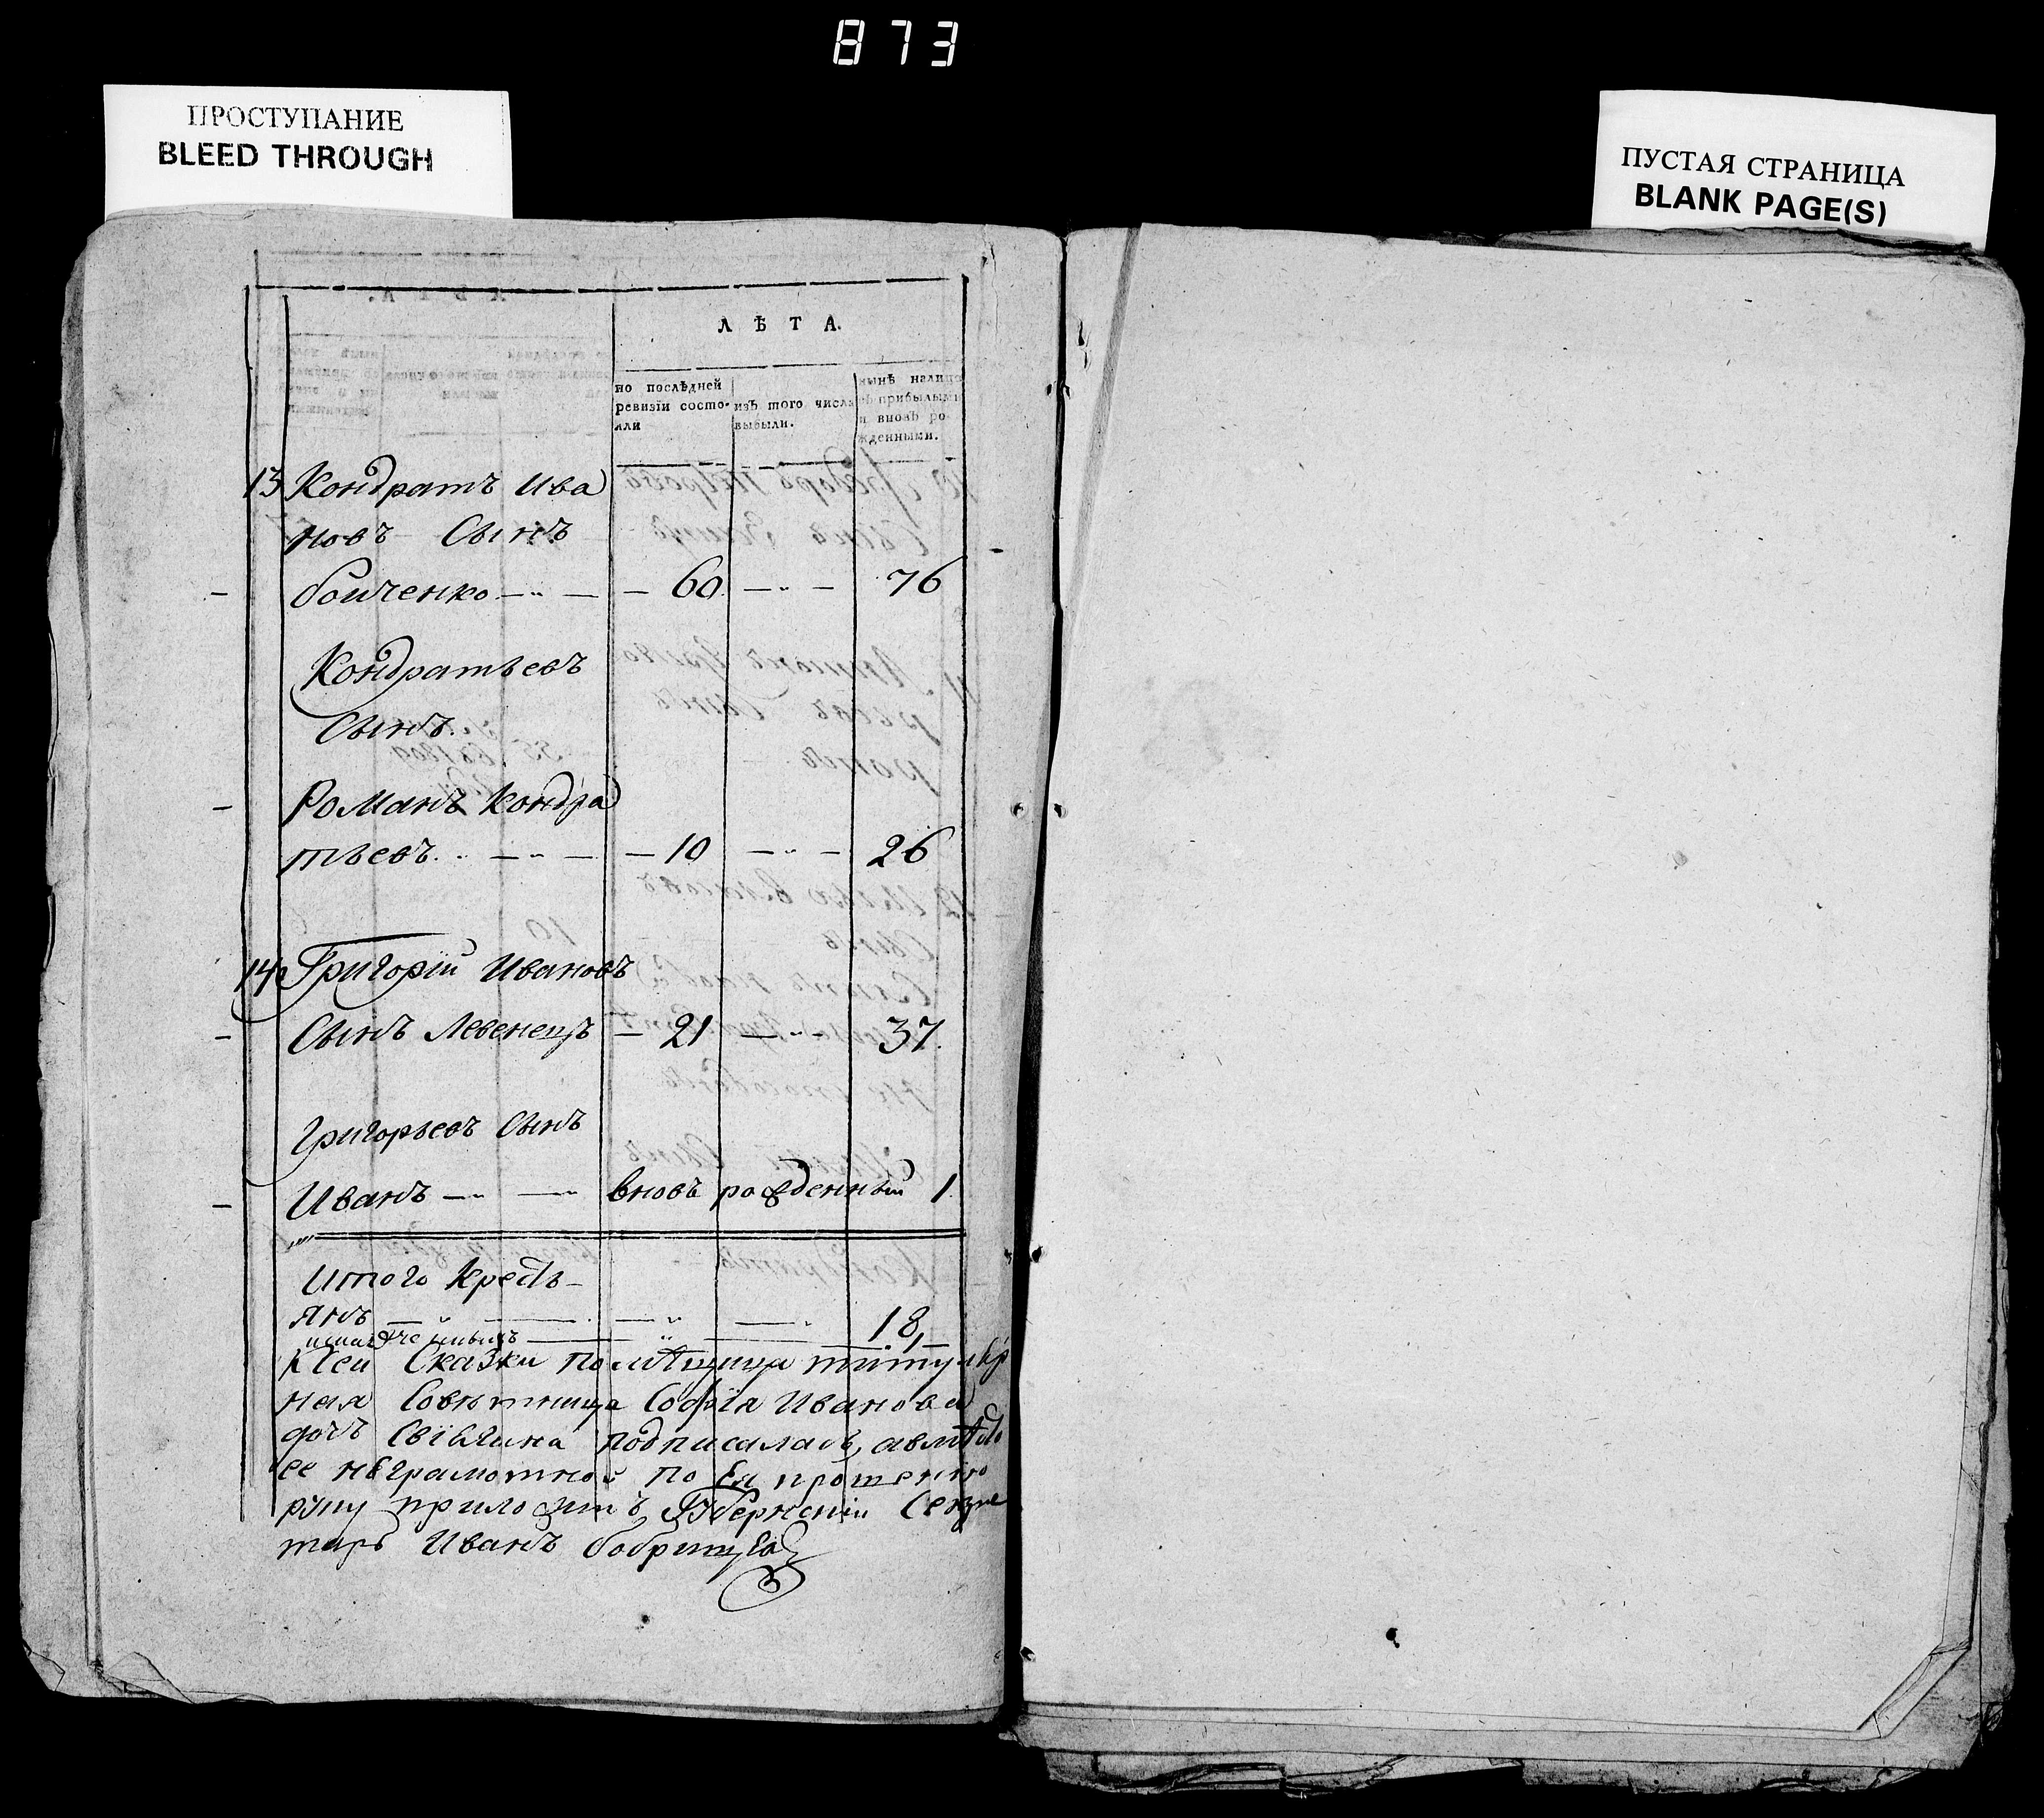 873
ПРОСТУПАНИЕ
BLEED THROUGH
ПУСТАЯ СТРАНИЦА
BLANK PAGE(S)
ЛѢТА.
по послѣдней ревизіи состояли
изъ того числа выбыли.
нынѣ налицо съ прибылыми и вновь рожденными.
13 Кондратъ Ива
новъ Сынъ
бойченко — 60 — 76
Кондратьевъ
Сынъ
Романъ Кондра
тьевъ — 10 — 26
14 Григорій Ивановъ
Сынъ Левенецъ — 21 — 37.
Григорьевъ Сынъ
Иванъ — вновь рожденный 1
Итого Кресть-
янъ — 18,
к сей Сказки помѣщица титуляр
ная Совѣтница Софія Иванова
дочь подписалась, а вмѣсто
ее неграмотной по Ея прошенію
руку приложилъ Губернскій Секре
тарь Иванъ